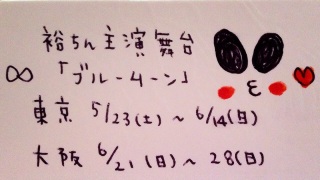 裕ちん主演舞台
∞「ブルームーン」
東京 5/23(土)~6/14(日)
大阪 6/21(日)~28(日)